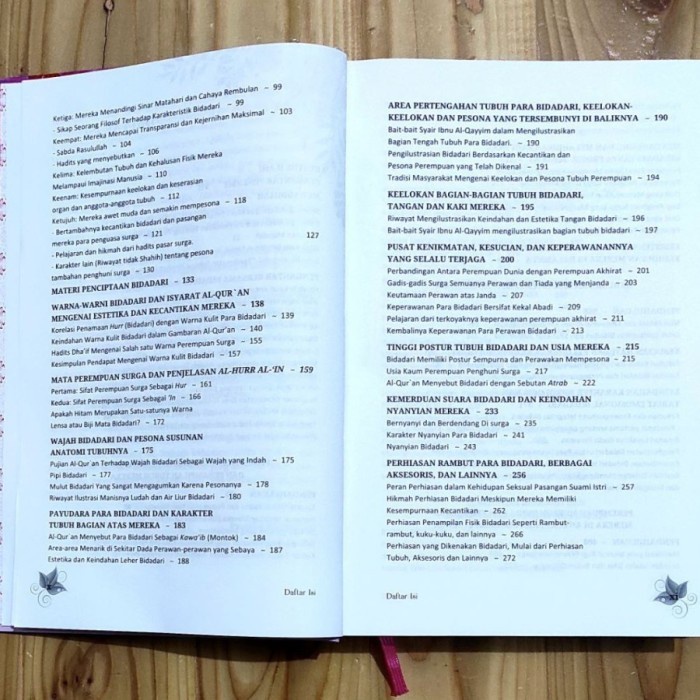 Ketiga: Mereka Menandingi Sinar Matahari dan Cahaya Rembulan – 99
- Sikap Seorang Filosof Terhadap Karakteristik Bidadari – 99
Keempat: Mereka Mencapai Transparansi dan Kejernihan Maksimal – 103
- Sabda Rasulullah – 104
- Hadits yang menyebutkan – 106
Kelima: Kelembutan Tubuh dan Kehalusan Fisik Mereka
Melampaui Imajinasi Manusia – 110
Keenam: Kesempurnaan keelokan dan keserasian
organ dan anggota-anggota tubuh – 112
Ketujuh: Mereka awet muda dan semakin mempesona – 118
- Bertambahnya kecantikan bidadari dan pasangan
mereka para penguasa surga – 121
- Pelajaran dan hikmah dari hadits pasar surga. 127
- Karakter lain (Riwayat tidak Shahih) tentang pesona
tambahan penghuni surga – 130
MATERI PENCIPTAAN BIDADARI – 133
WARNA-WARNI BIDADARI DAN ISYARAT AL-QUR`AN
MENGENAI ESTETIKA DAN KECANTIKAN MEREKA – 138
Korelasi Penamaan Hurr (Bidadari) dengan Warna Kulit Para Bidadari – 139
Keindahan Warna Kulit Bidadari dalam Gambaran Al-Qur'an – 140
Hadits Dha'if Mengenai Salah satu Warna Perempuan Surga – 155
Kesimpulan Pendapat Mengenai Warna Kulit Bidadari – 157
MATA PEREMPUAN SURGA DAN PENJELASAN AL-HURR AL-'IN – 159
Pertama: Sifat Perempuan Surga Sebagai Hur – 161
Kedua: Sifat Perempuan Surga Sebagai 'In – 166
Apakah Hitam Merupakan Satu-satunya Warna
Lensa atau Biji Mata Bidadari? – 172
WAJAH BIDADARI DAN PESONA SUSUNAN
ANATOMI TUBUHNYA – 175
Pujian Al-Qur`an Terhadap Wajah Bidadari Sebagai Wajah yang Indah – 175
Pipi Bidadari – 177
Mulut Bidadari Yang Sangat Mengagumkan Karena Pesonanya – 178
Riwayat Ilustrasi Manisnya Ludah dan Air Liur Bidadari – 180
PAYUDARA PARA BIDADARI DAN KARAKTER
TUBUH BAGIAN ATAS MEREKA – 183
Al-Qur`an Menyebut Para Bidadari Sebagai Kawa'ib (Montok) – 184
Area-area Menarik di Sekitar Dada Perawan-perawan yang Sebaya – 187
Estetika dan Keindahan Leher Bidadari – 188
Daftar Isi
AREA PERTENGAHAN TUBUH PARA BIDADARI, KEELOKAN-
KEELOKAN DAN PESONA YANG TERSEMBUNYI DI BALIKNYA – 190
Bait-bait Syair Ibnu Al-Qayyim dalam Mengilustrasikan
Bagian Tengah Tubuh Para Bidadari. – 190
Pengilustrasian Bidadari Berdasarkan Kecantikan dan
Pesona Perempuan yang Telah Dikenal – 191
Tradisi Masyarakat Mengenai Keelokan dan Pesona Tubuh Perempuan – 194
KEELOKAN BAGIAN-BAGIAN TUBUH BIDADARI,
TANGAN DAN KAKI MEREKA – 195
Riwayat Mengilustrasikan Keindahan dan Estetika Tangan Bidadari – 196
Bait-bait Syair Ibnu Al-Qayyim mengilustrasikan bagian tubuh bidadari – 197
PUSAT KENIKMATAN, KESUCIAN, DAN KEPERAWANANNYA
YANG SELALU TERJAGA – 200
Perbandingan Antara Perempuan Dunia dengan Perempuan Akhirat – 201
Gadis-gadis Surga Semuanya Perawan dan Tiada yang Menjanda – 203
Keutamaan Perawan atas Janda – 207
Keperawanan Para Bidadari Bersifat Kekal Abadi – 209
Pelajaran dari terkoyaknya keperawanan perempuan akhirat – 211
Kembalinya Keperawanan Para Perawan Bidadari – 213
TINGGI POSTUR TUBUH BIDADARI DAN USIA MEREKA – 215
Bidadari Memiliki Postur Sempurna dan Perawakan Mempesona – 215
Usia Kaum Perempuan Penghuni Surga – 217
Al-Qur`an Menyebut Bidadari dengan Sebutan Atrab – 222
KEMERDUAN SUARA BIDADARI DAN KEINDAHAN
NYANYIAN MEREKA – 233
Bernyanyi dan Berdendang Di surga – 235
Karakter Nyanyian Para Bidadari – 241
Nyanyian Bidadari – 243
PERHIASAN RAMBUT PARA BIDADARI, BERBAGAI
AKSESORIS, DAN LAINNYA – 256
Peran Perhiasan dalam Kehidupan Seksual Pasangan Suami Istri – 257
Hikmah Perhiasan Bidadari Meskipun Mereka Memiliki
Kesempurnaan Kecantikan – 262
Perhiasan Penampilan Fisik Bidadari Seperti Rambut-
rambut, kuku-kuku, dan lainnya – 266
Perhiasan yang Dikenakan Bidadari, Mulai dari Perhiasan
Tubuh, Aksesoris dan Lainnya – 272
Daftar Isi